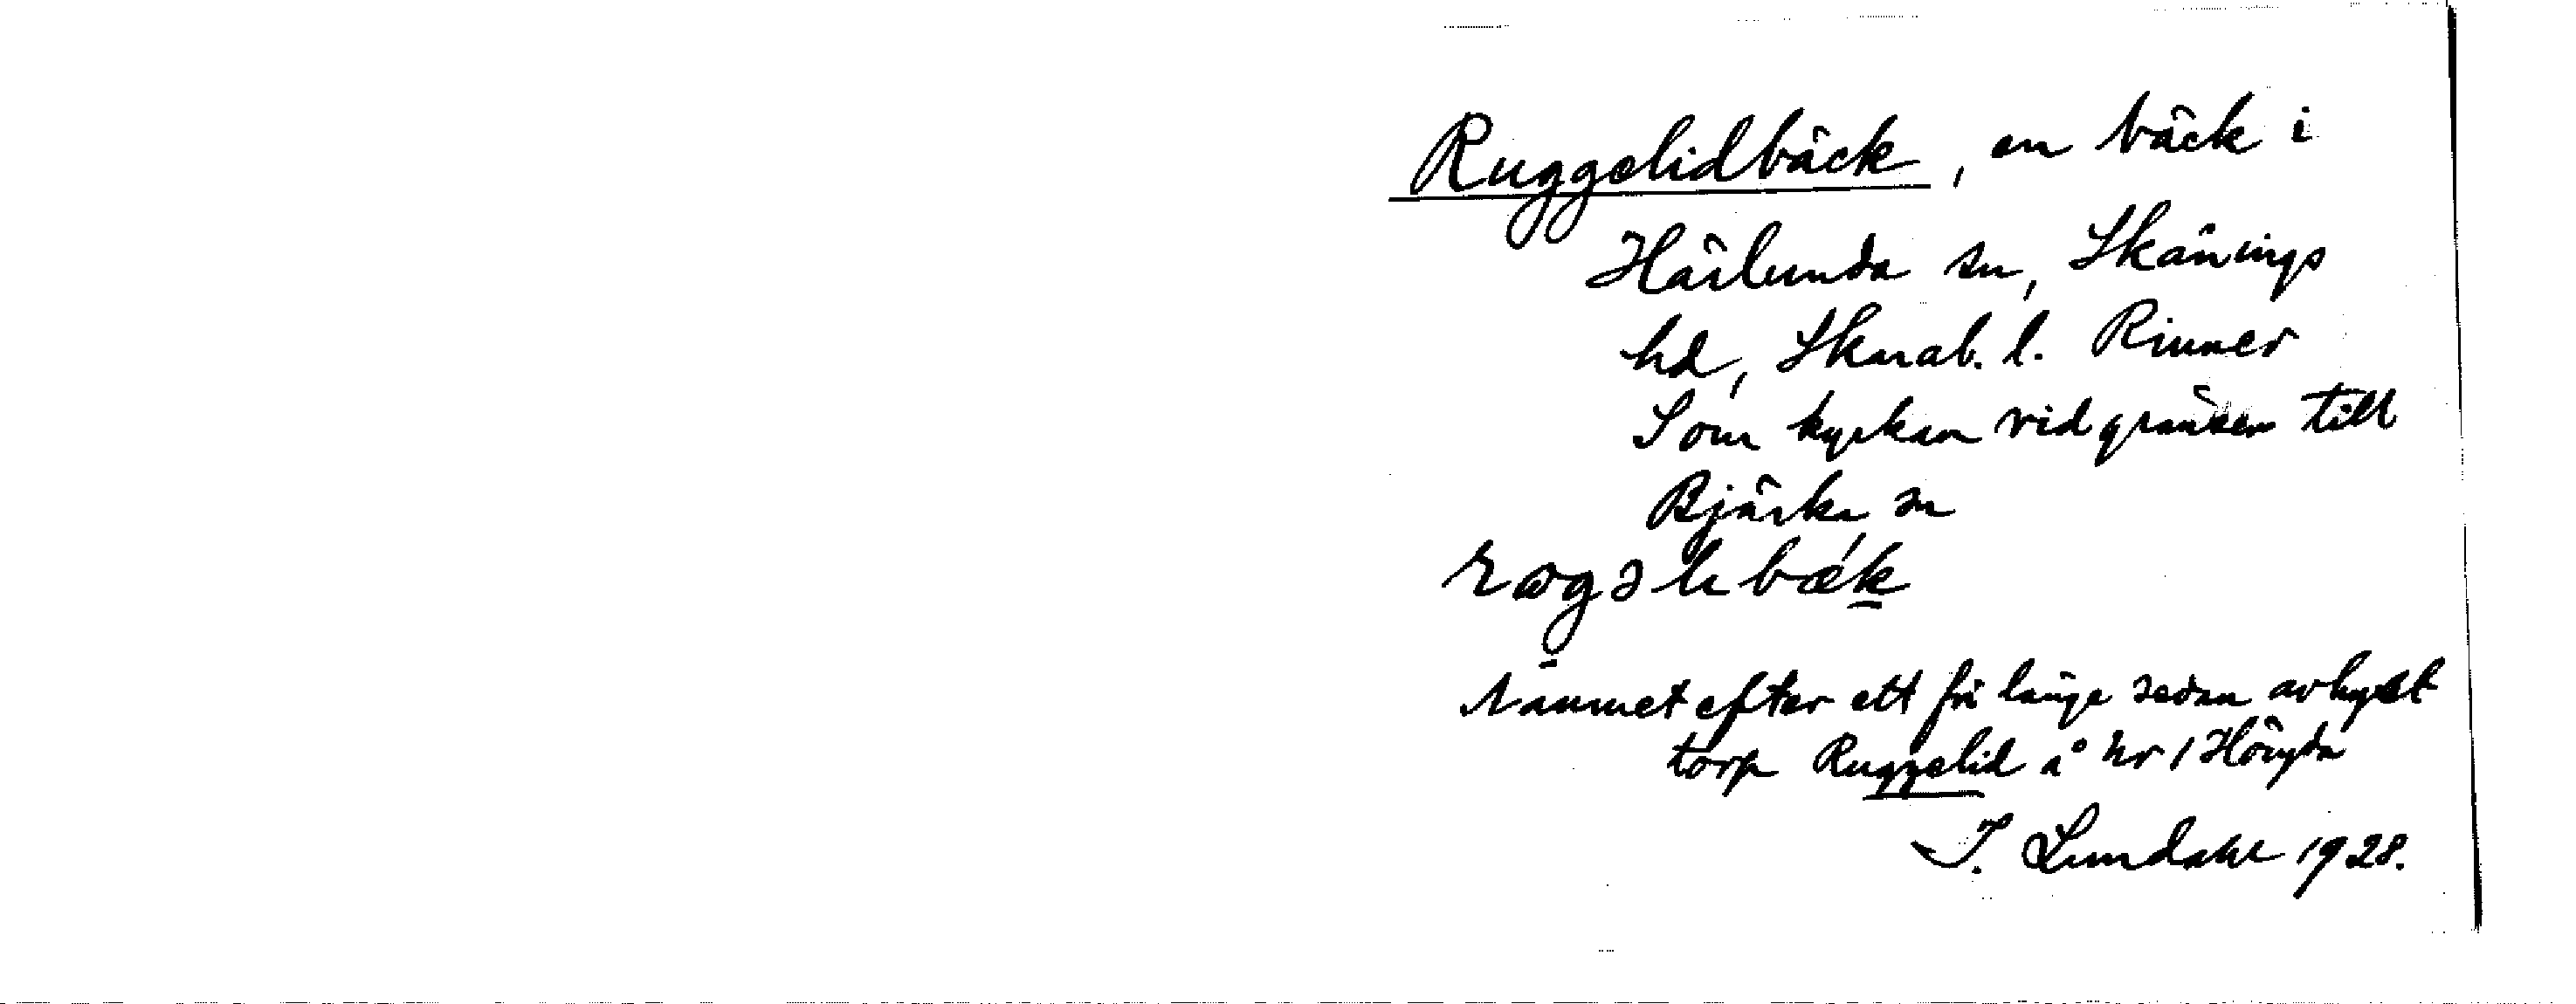 Ruggelidbäck, en bäck i
Härlunda sn, Skånings
hd, Skarab. l. Rinner
S om kyrkan vid gränsen till
Bjärka sn
rɷgəlıbǽk
Namnet efter ett för länge sedan avhyst
torp Ruggelid å nr 1 Höjda
I. Lundahl 1928.